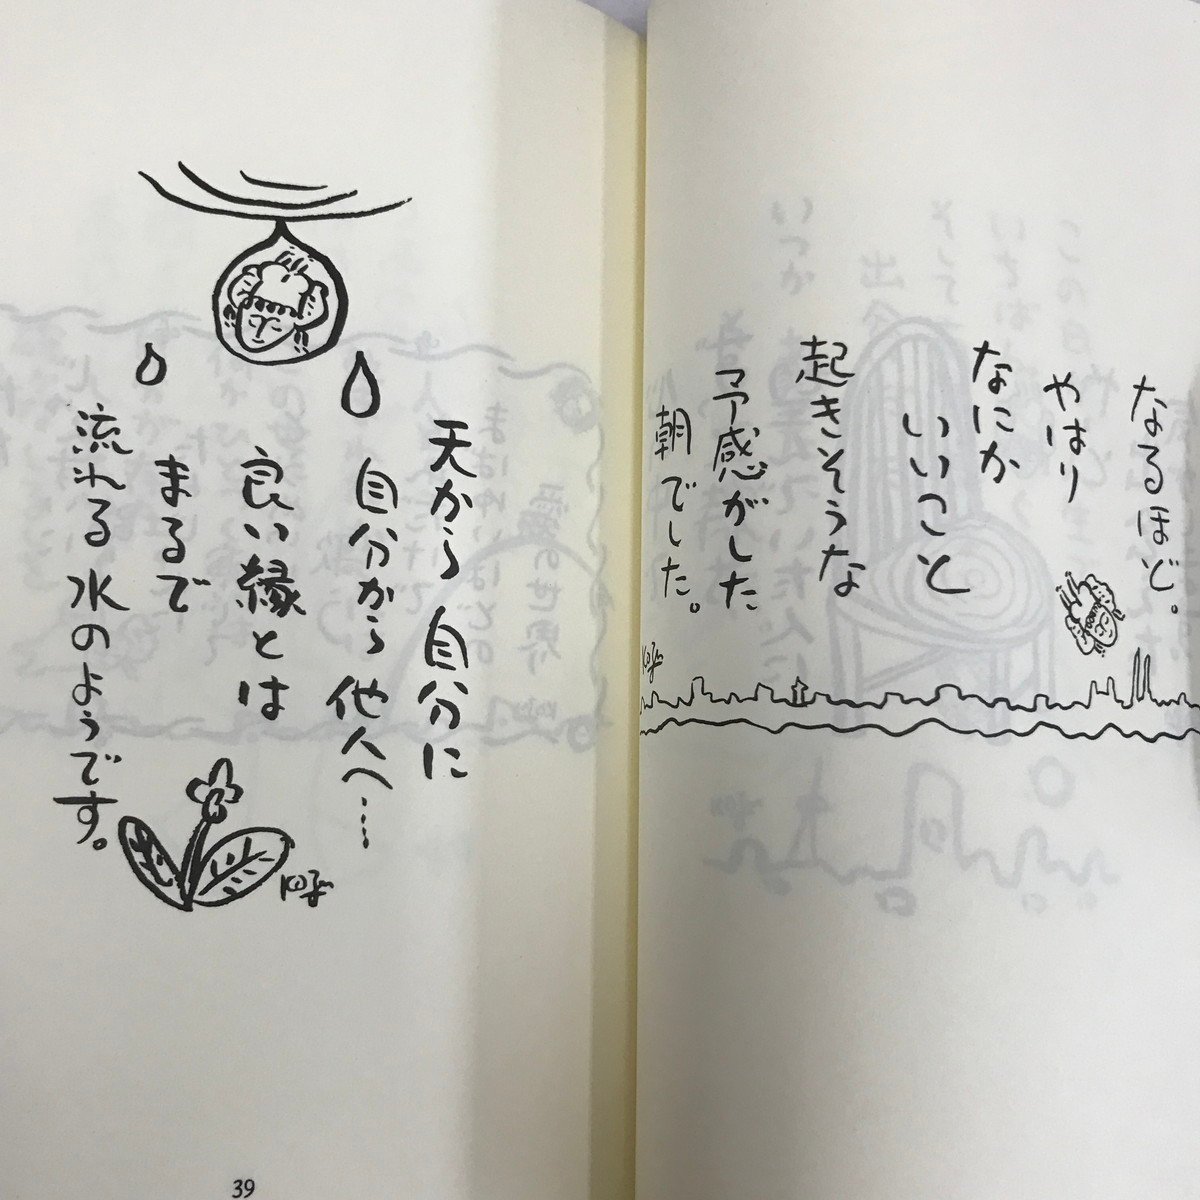 なるほど。
やはり
なにか
いいこと
起きそうな
予感がした
朝でした。
天から自分に
自分から他人へ…
良い縁とは
まるで
流れる水のようです。
39